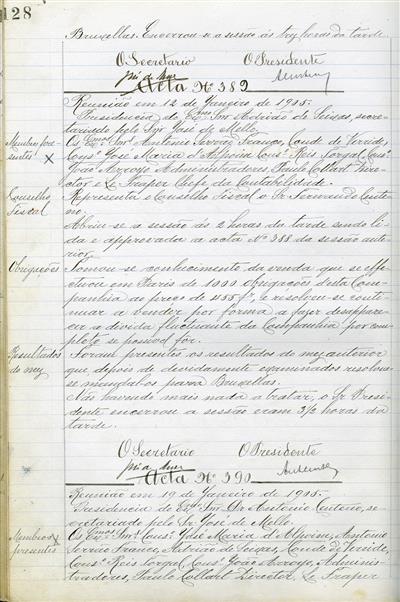 128
Bruxellas. Encerrou-se a sessão ás tres horas da tarde
O Secretario O Presidente
Acta Nº 389
Reunião em 12 de Janeiro de 1905.
Presidencia do Exmo Snr Adrião de Seixas, secre-
tariado pelo Snr José de Mello.
Membros pre-
sentes X
Os Exmos Snrs Antonio Serrão Franco, Conde de Verride,
Consº José Maria d'Alpoim Consº Reis Torgal, Consº
João Arroyo Administradores, Paulo Collart Dire-
ctor, e Le Fraper Chefe da Contabilidade.
Conselho
Fiscal
Representa o Conselho Fiscal o Sr Fernando Cente-
no.
Abriu-se a sessão ás 2 horas da tarde sendo li-
da e approvada a acta Nº 388 da sessão ante-
rior.
Obrigações
Tomou-se conhecimento da venda que se effe-
ctuou em Paris de 1000 obrigações d'esta Com-
panhia ao preço de 455 f, e resolveu-se conti-
nuar a vender por forma a fazer desappare-
cer a divida fluctuante da Companhia por com-
pleto se possivel fôr.
Resultados
do mez
Foram presentes os resultados do mez anterior
que depois de devidamente examinados resolveu-
se mandal-os para Bruxellas.
Não havendo mais nada a tratar, o Sr Presi-
dente encerrou a sessão eram 3½ horas da
tarde.
O Secretario O Presidente
Acta Nº 390
Reunião em 19 de Janeiro de 1905.
Presidencia do Exmo Snr Dr Antonio Centeno, se-
cretariado pelo Sr José de Mello.
Membros X
presentes
Os Exmos Snrs Consº José Maria d'Alpoim, Antonio
Serrão Franco, Adrião de Seixas, Conde de Verride,
Consº Reis Torgal, Consº João Arroyo, Adminis-
tradores, Paulo Collart Director, Le Fraper